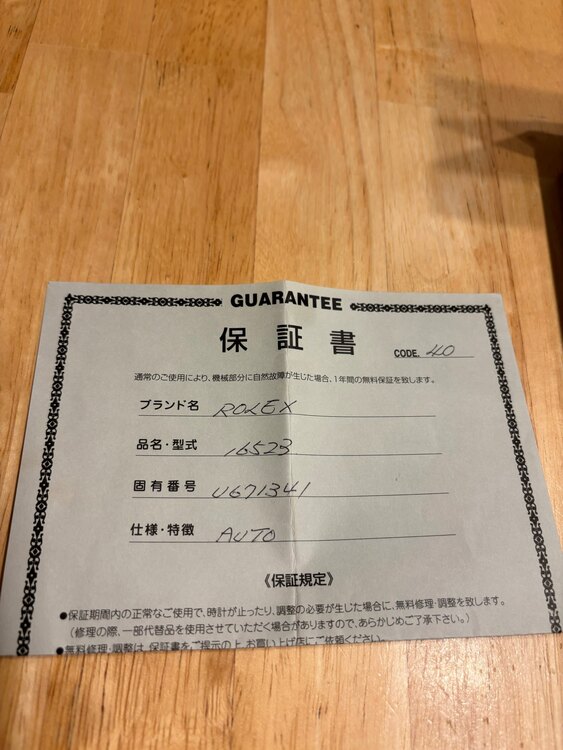 GUARANTEE
保証書
CODE. 40
通常のご使用により、機械部分に自然故障が生じた場合、1年間の無料保証を致します。
ブランド名 ROLEX
品名・型式 16523
固有番号 U671341
仕様・特徴 AUTO
《保証規定》
●保証期間内の正常なご使用で、時計が止ったり、調整の必要が生じた場合に、無料修理・調整を致します。
(修理の際、一部代替品を使用させていただく場合がありますので、あらかじめご了承下さい。)
●無料修理・調整は、保証書をご提示の上、お買い上げ店にご依頼ください。